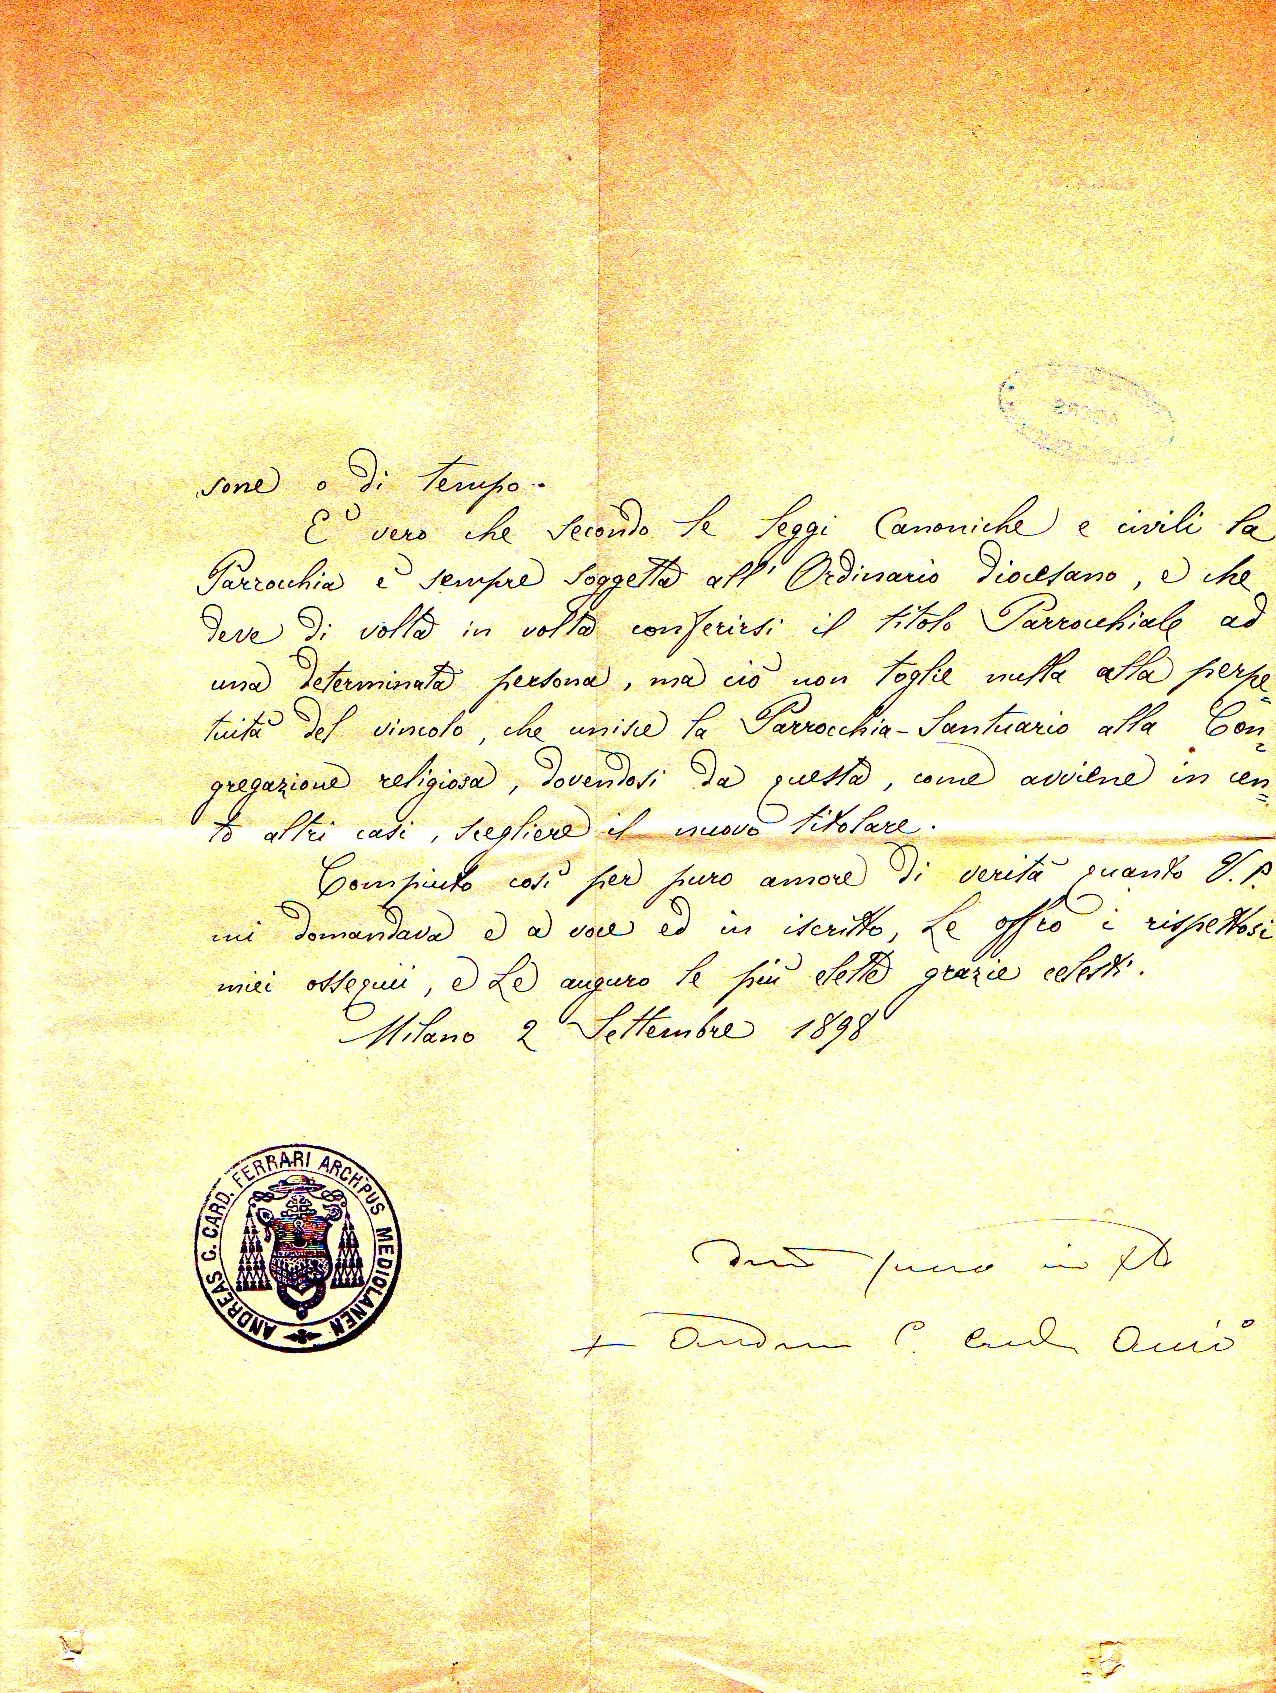 sone o di tempo.
E' vero che secondo le leggi Canoniche e civili la
Parrocchia è sempre soggetta all' Ordinario Diocesano, e che
deve di volta in volta conferirsi il titolo Parrocchiale ad
una determinata persona, ma ciò non toglie nulla alla perpe=
tuità del vincolo, che unisce la Parrocchia-Santuario alla Con=
gregazione religiosa, dovendosi da questa, come avviene in cen=
to altri casi, scegliere il nuovo titolare.
Compiuto così per puro amore di verità quanto V.P.
mi domandava e a voce ed in iscritto, Le offro i rispettosi
miei ossequii, e Le auguro le più elette grazie celesti.
Milano 2 Settembre 1898
ANDREAS C. CARD. FERRARI ARCHPUS MEDIOLANEN
in
+ Andrea C. Card.